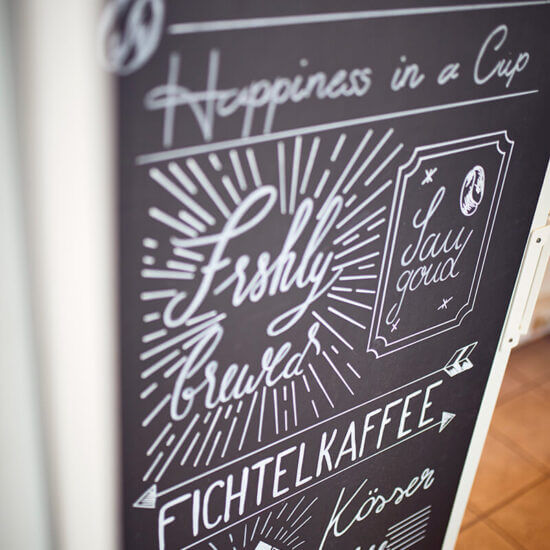 Happiness in a Cup
Frshly
brewed
Sau
goud
FICHTELKAFFEE
Kösser